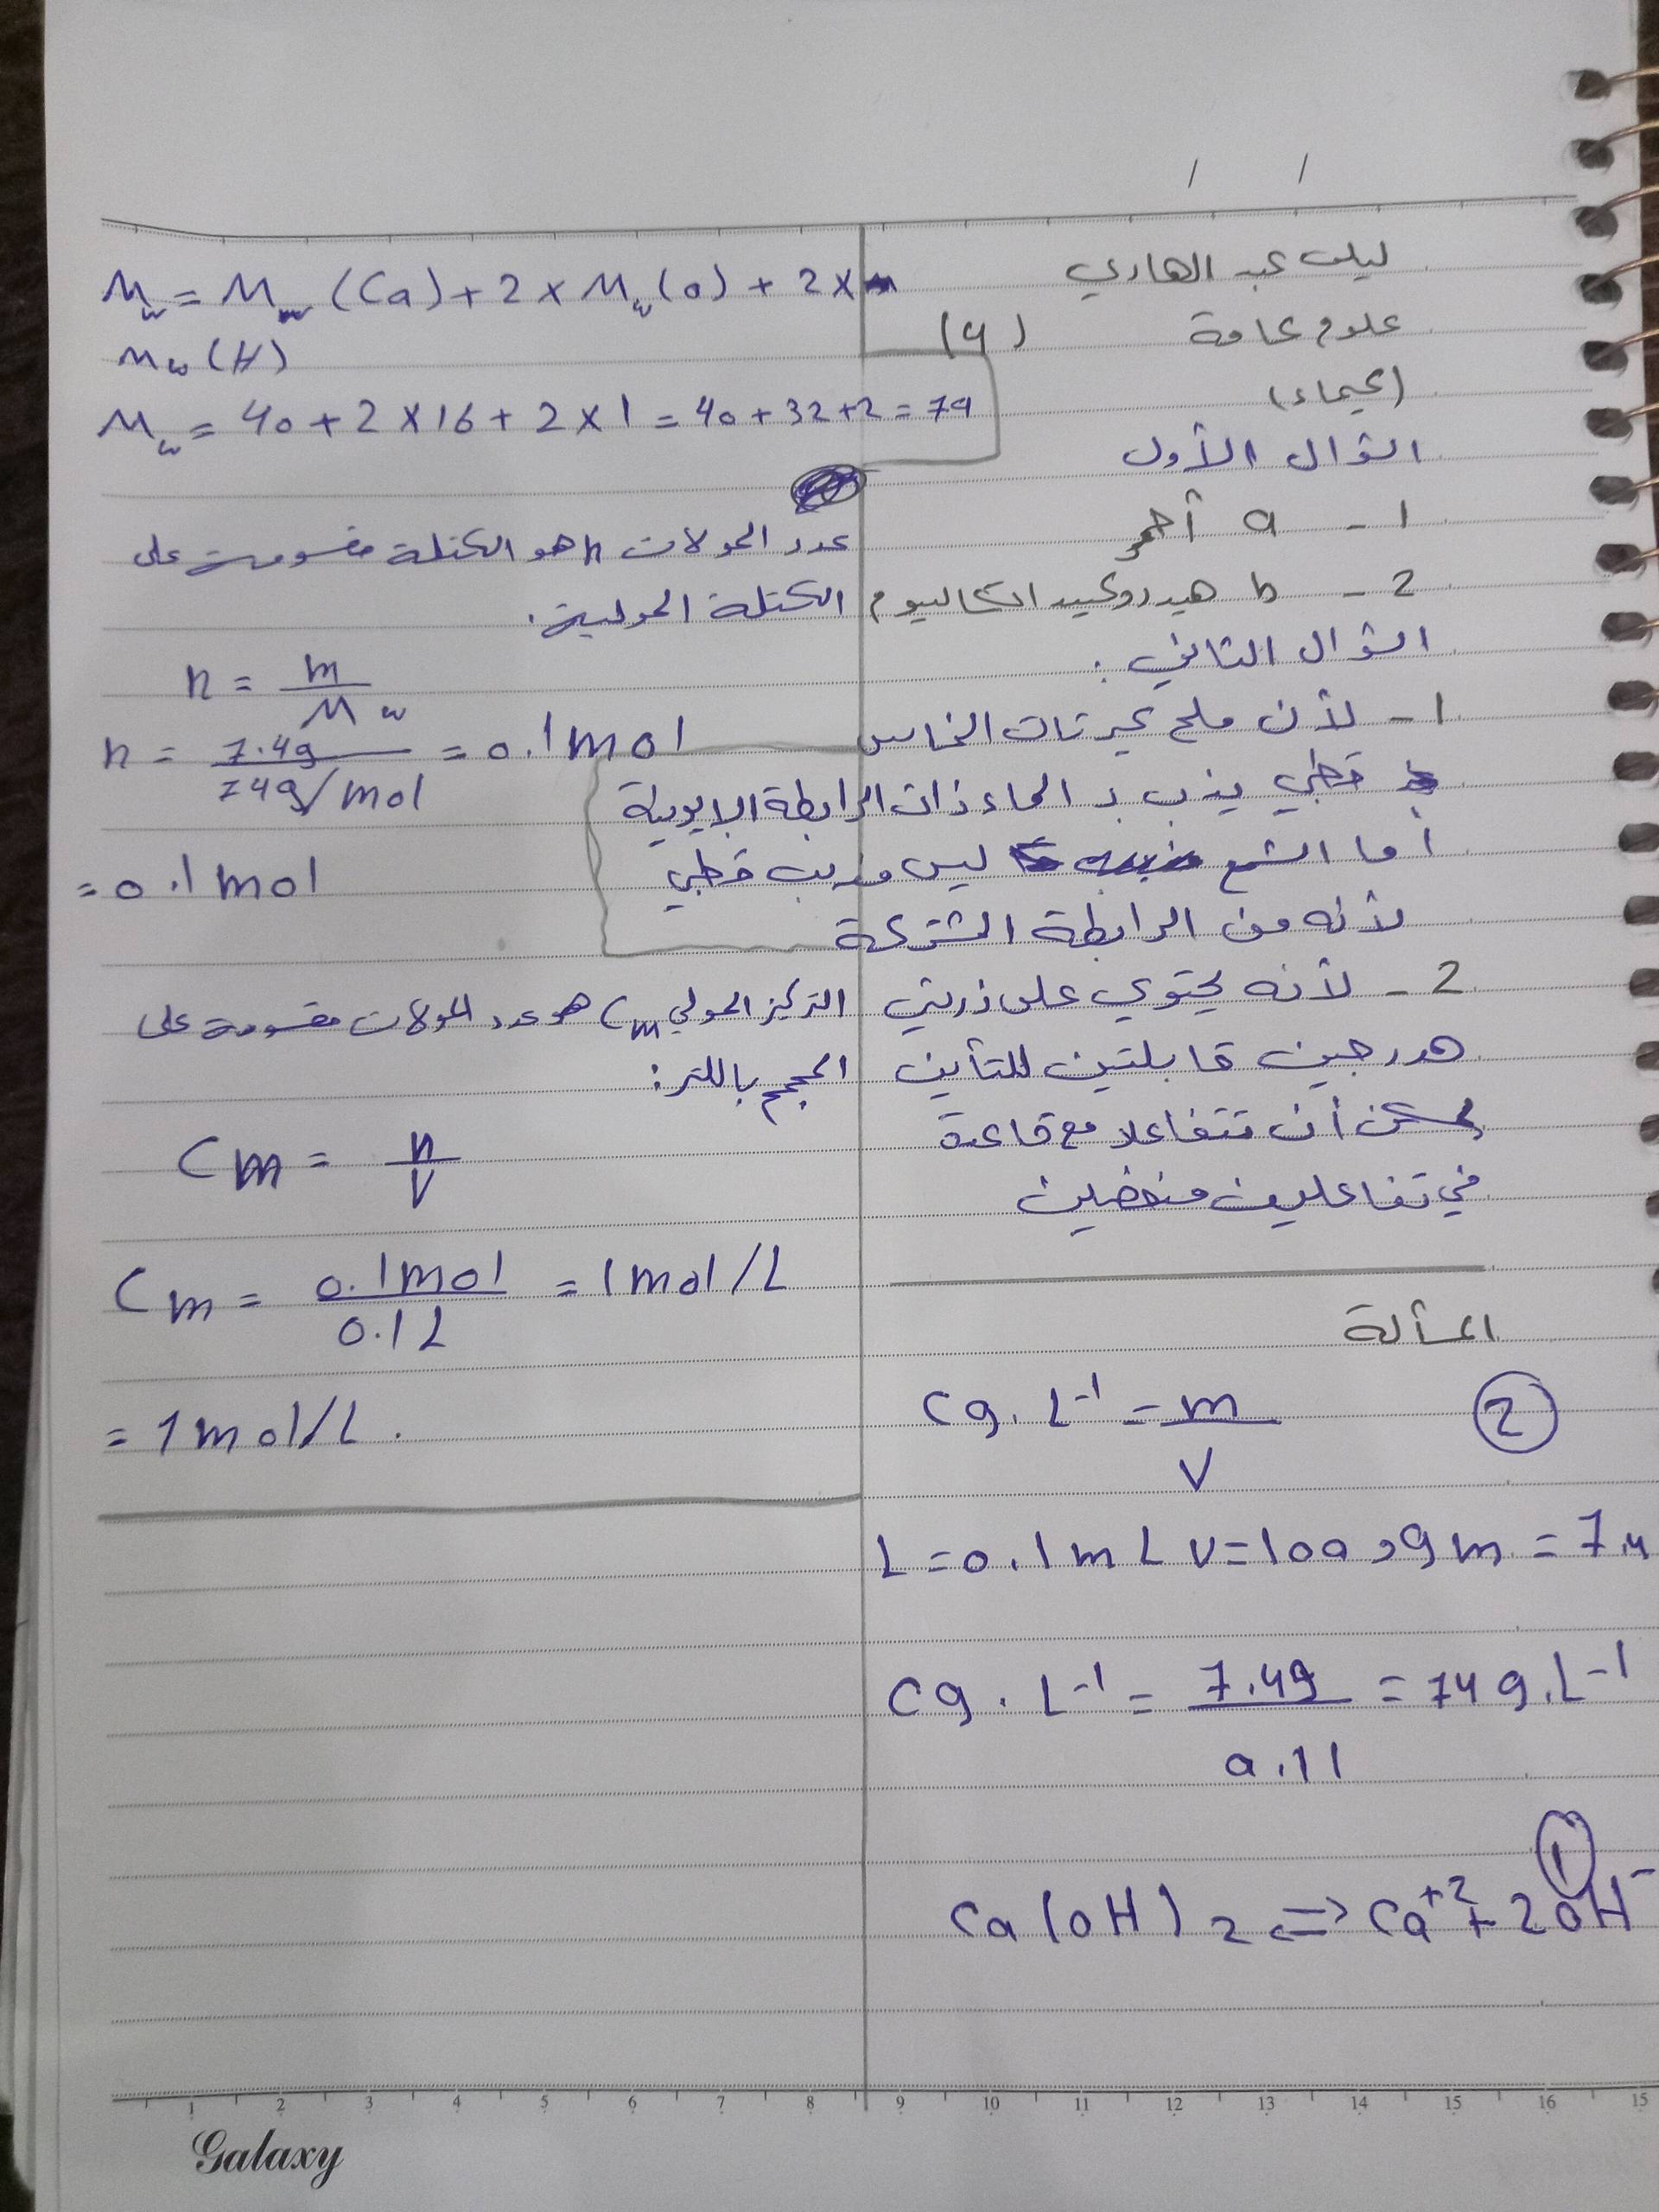 / /
ليلى عبد الهادي
علوم عامة (4)
(كيمياء)
السؤال الأول
1 - a أحمر
2 - b هيدروكسيد الكالسيوم
السؤال الثاني :
1 - لأن ملح كبريتات النحاس
قطبي يذب بـ الماء ذات الرابطة الايونية
أما الشمع ليس مذيب قطبي
لأنه من الرابطة المشتركة
2 - لأنه يحتوي على ذرتي
هدرجين قابلتين للتأين
يمكن أن تتفاعلا مع قاعدة
في تفاعليين منفصلين
المسألة
2 Cg. L⁻¹ = m/V
L = 0.1 m L v = 100 و g m = 7.4
Cg. L⁻¹ = 7.4g/0.1 l = 74 g. L⁻¹
1
Ca(OH)₂ ⇌ Ca⁺² + 2OH⁻
Mw = Mw (Ca) + 2 x Mw (O) + 2 x
Mw (H)
Mw = 40 + 2 x 16 + 2 x 1 = 40 + 32 + 2 = 74
عدد المولات n هو الكتلة مقسومة على
الكتلة المولية.
n = m/Mw
n = 7.4g/74g/mol = 0.1 mol
= 0.1 mol
التركيز المولي Cm هو عدد المولات مقسومة على
الحجم باللتر:
Cm = n/V
Cm = 0.1 mol/0.1 L = 1 mol/L
= 1 mol/L .
1 2 3 4 5 6 7 8 9 10 11 12 13 14 15 16 15
Galaxy